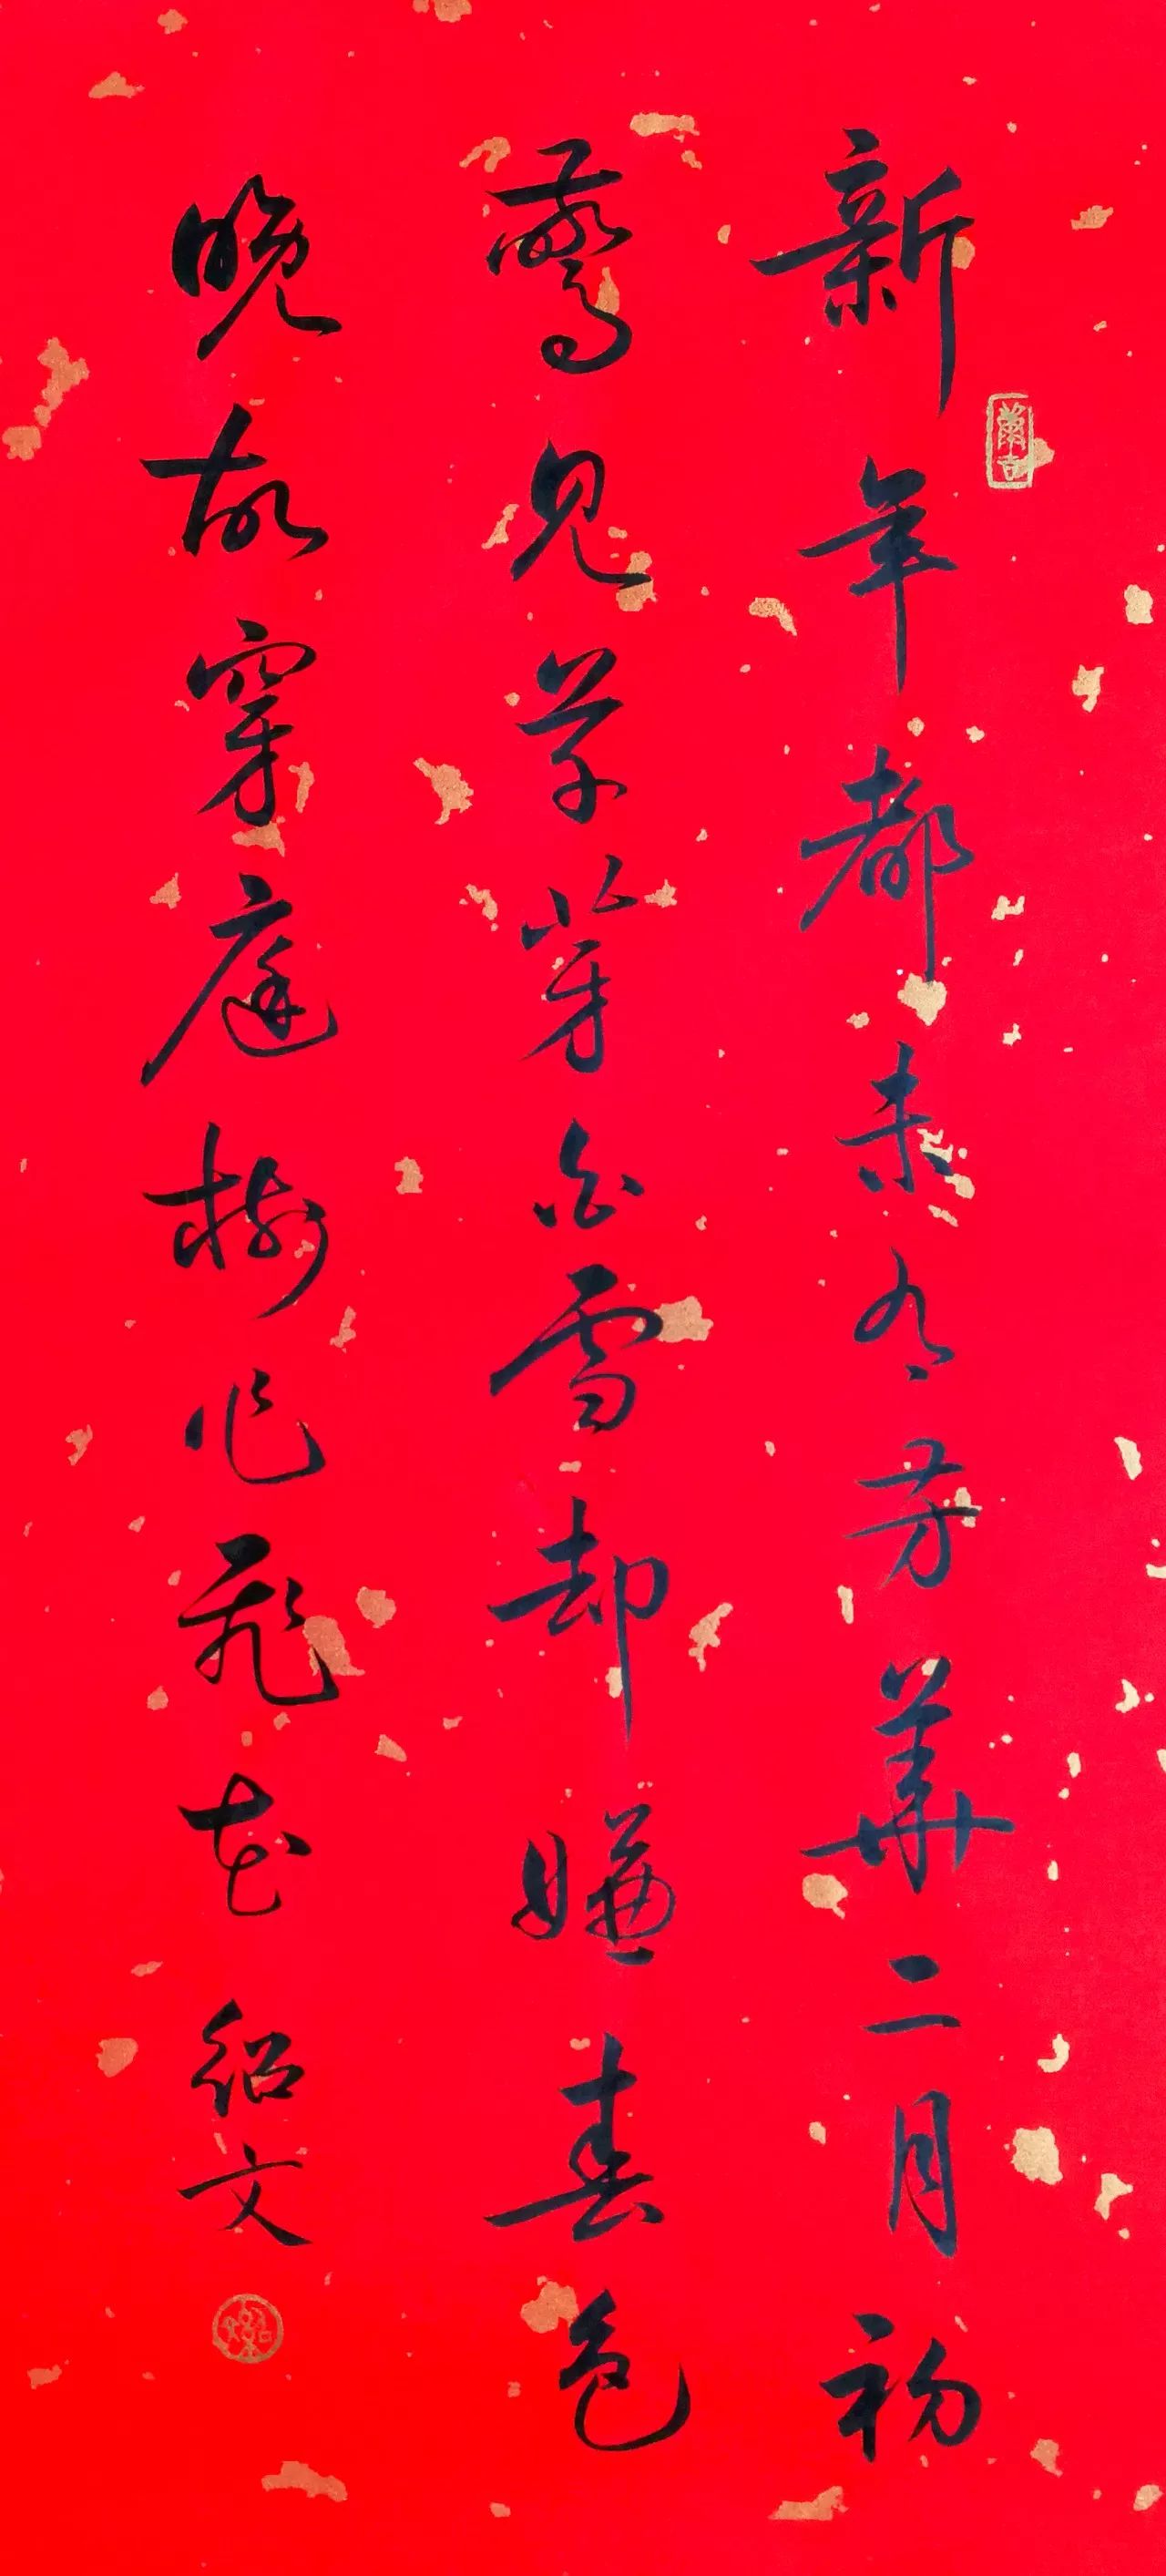 新年都未有芳華二月初
驚見草芽白雪却嫌春色
晚故穿庭樹作飛花 绍文